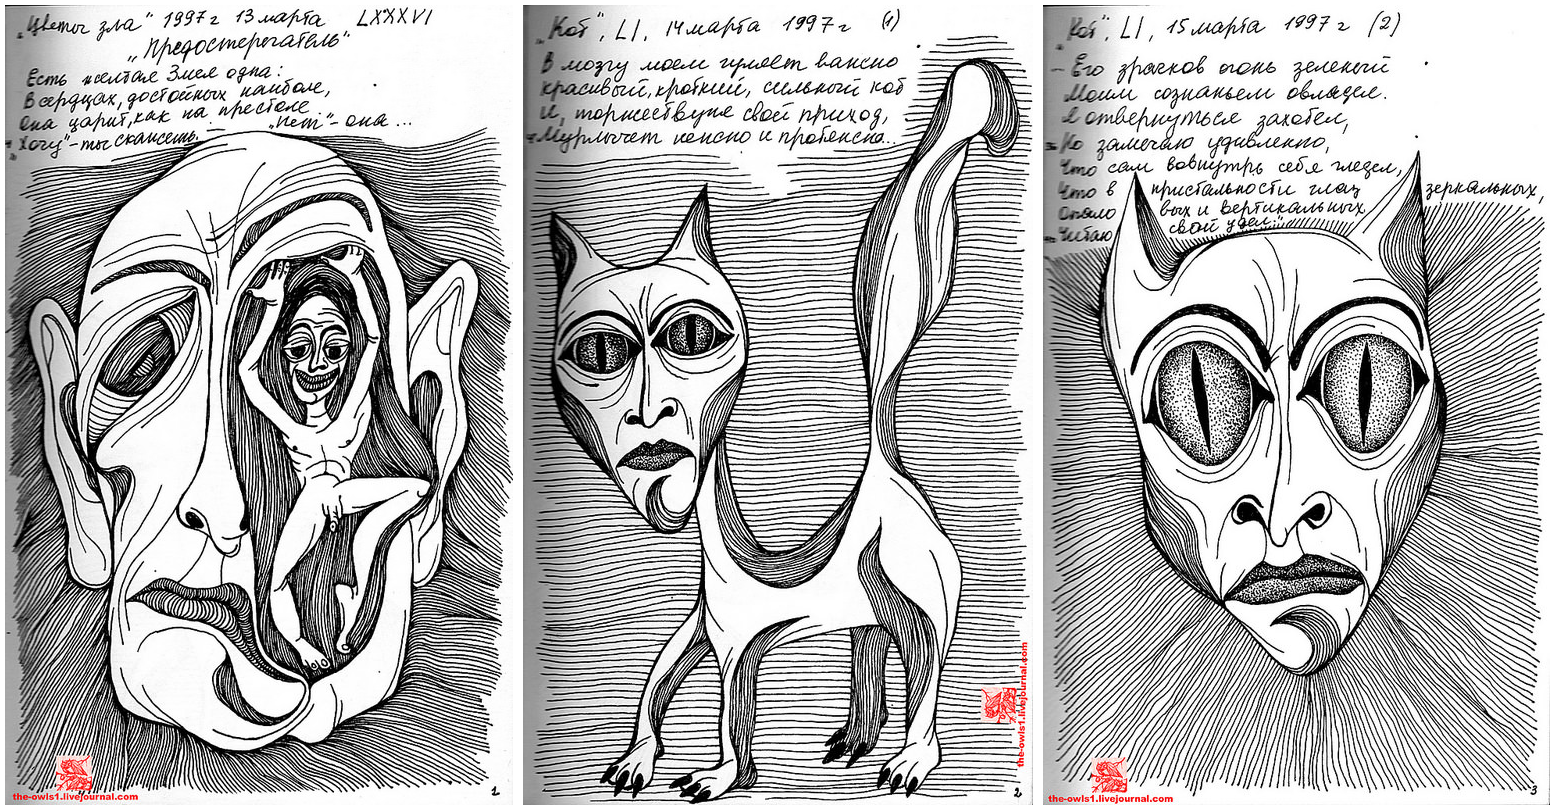 „Цветы зла" 1997 г 13 марта LXXXVI
„Предостерегатель"
Есть желтая Змея одна:
В сердцах, достойных наиболе,
Она царит, как на престоле
„Хочу" – ты скажешь. – „Нет" – она...
1
the-owls1.livejournal.com
„Кот", LI, 14 марта 1997 г (1)
В мозгу моем гуляет важно
красивый, кроткий, сильный кот
И, торжествуя свой приход,
Мурлычет нежно и протяжно...
2
the-owls1.livejournal.com
„Кот", LI, 15 марта 1997 г (2)
– Его зрачков огонь зеленый
Моим сознаньем овладел.
Я отвернуться захотел,
Но замечаю удивленно,
Что сам вовнутрь себя глядел,
Что в пристальности глаз зеркальных,
вых и вертикальных
Читаю свой удел...
3
the-owls1.livejournal.com